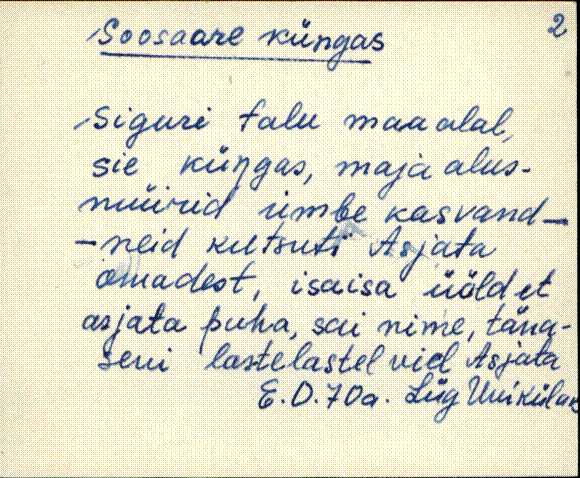 2
Soosaare küngas
Siguri talu maa alal,
sie küngas, maja alus-
müürid ümbe kasvand -
- neid kutsuti Asjata
omadest, isaisa üöldet
asjata puha, sai nime, täna-
seni lastelastel viel Asjata
E. O. 70a. Lüg Uniküla